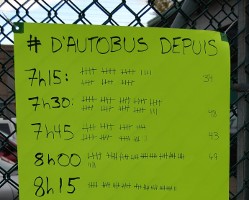 # D'AUTOBUS DEPUIS
7h15:
7h30:
7h45
8h00
8h15